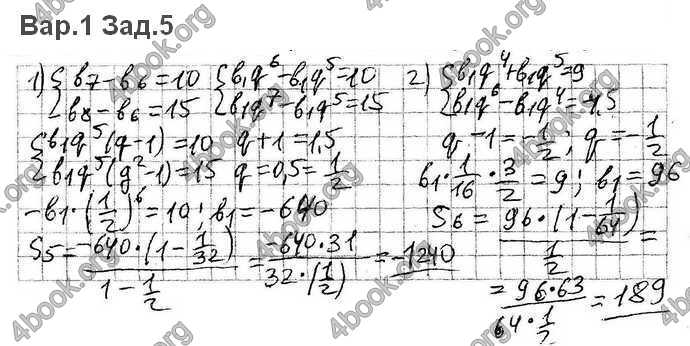 Вар.1 Зад.5
1) { b₇ - b₆ = 10  { b₁q⁶ - b₁q⁵ = 10
{ b₈ - b₆ = 15  { b₁q⁷ - b₁q⁵ = 15
{ b₁q⁵(q-1) = 10  q+1 = 1,5
{ b₁q⁵(q²-1) = 15  q = 0,5 = 1/2
-b₁·(1/2)⁶ = 10; b₁ = -640
S₅ = -640·(1 - 1/32) / (1 - 1/2) = -640·31 / 32·(1/2) = -1240
2) { b₁q⁴ + b₁q⁵ = 9
{ b₁q⁶ - b₁q⁴ = -4,5
q - 1 = -1/2; q = -1/2
b₁ · 1/16 · 3/2 = 9; b₁ = 96
S₆ = 96·(1 - 1/64) / 1/2 =
= 96·63 / 64·1/2 = 189
4book.org